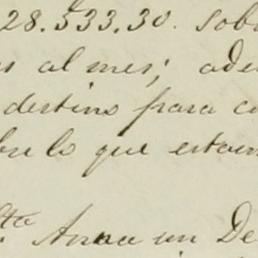 28.533.30. sob
s al mes; ade
destino para c
bre lo que estam
ta Anna un De